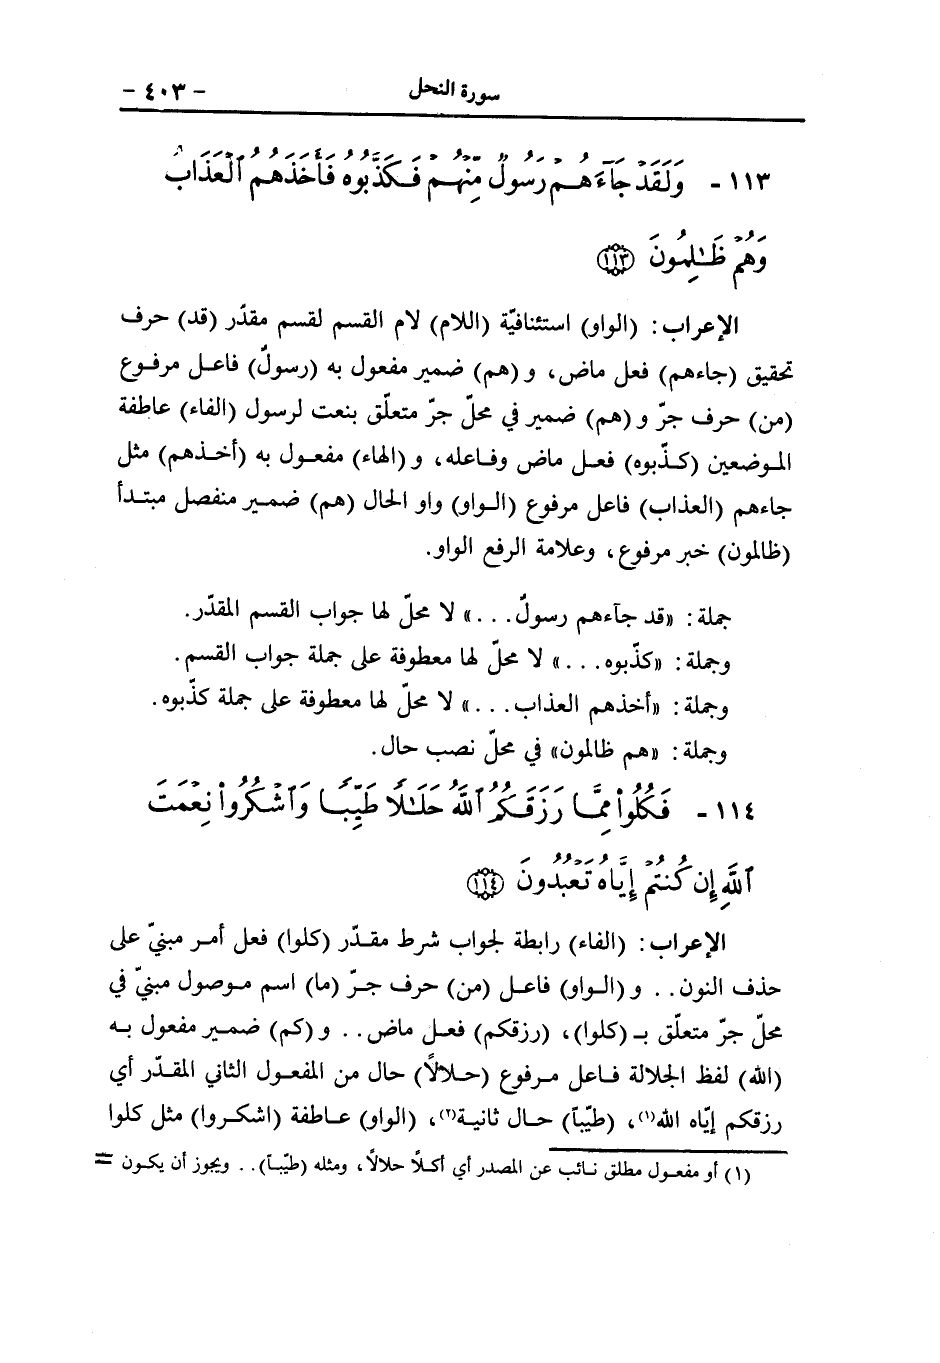 سورة النحل - ٤٠٣ -
١١٣ - وَلَقَدْ جَآءَهُمْ رَسُولٌ مِّنْهُمْ فَكَذَّبُوهُ فَأَخَذَهُمُ ٱلْعَذَابُ
وَهُمْ ظَـٰلِمُونَ ١١٣
الإعراب: (الواو) استئنافيّة (اللام) لام القسم لقسم مقدّر (قد) حرف
تحقيق (جاءهم) فعل ماض، و(هم) ضمير مفعول به (رسولٌ) فاعل مرفوع
(من) حرف جرّ و(هم) ضمير في محلّ جرّ متعلّق بنعت لرسول (الفاء) عاطفة
الموضعين (كذّبوه) فعل ماض وفاعله، و(الهاء) مفعول به (أخذهم) مثل
جاءهم (العذاب) فاعل مرفوع (الواو) واو الحال (هم) ضمير منفصل مبتدأ
(ظالمون) خبر مرفوع، وعلامة الرفع الواو.
جملة: «قد جآءهم رسولٌ...» لا محلّ لها جواب القسم المقدّر.
وجملة: «كذّبوه...» لا محلّ لها معطوفة على جملة جواب القسم.
وجملة: «أخذهم العذاب...» لا محلّ لها معطوفة على جملة كذّبوه.
وجملة: «هم ظالمون» في محلّ نصب حال.
١١٤ - فَكُلُوا۟ مِمَّا رَزَقَكُمُ ٱللَّهُ حَلَـٰلًا طَيِّبًا وَٱشْكُرُوا۟ نِعْمَتَ
ٱللَّهِ إِن كُنتُمْ إِيَّاهُ تَعْبُدُونَ ١١٤
الإعراب: (الفاء) رابطة لجواب شرط مقدّر (كلوا) فعل أمر مبنيّ على
حذف النون.. و(الواو) فاعل (من) حرف جرّ (ما) اسم موصول مبنيّ في
محلّ جرّ متعلّق بـ (كلوا)، (رزقكم) فعل ماض.. و(كم) ضمير مفعول به
(الله) لفظ الجلالة فاعل مرفوع (حلالاً) حال من المفعول الثاني المقدّر أي
رزقكم إيّاه الله(١)، (طيّباً) حال ثانية(٢)، (الواو) عاطفة (اشكروا) مثل كلوا
(١) أو مفعول مطلق نائب عن المصدر أي أكلاً حلالاً، ومثله (طيّباً).. ويجوز أن يكون =